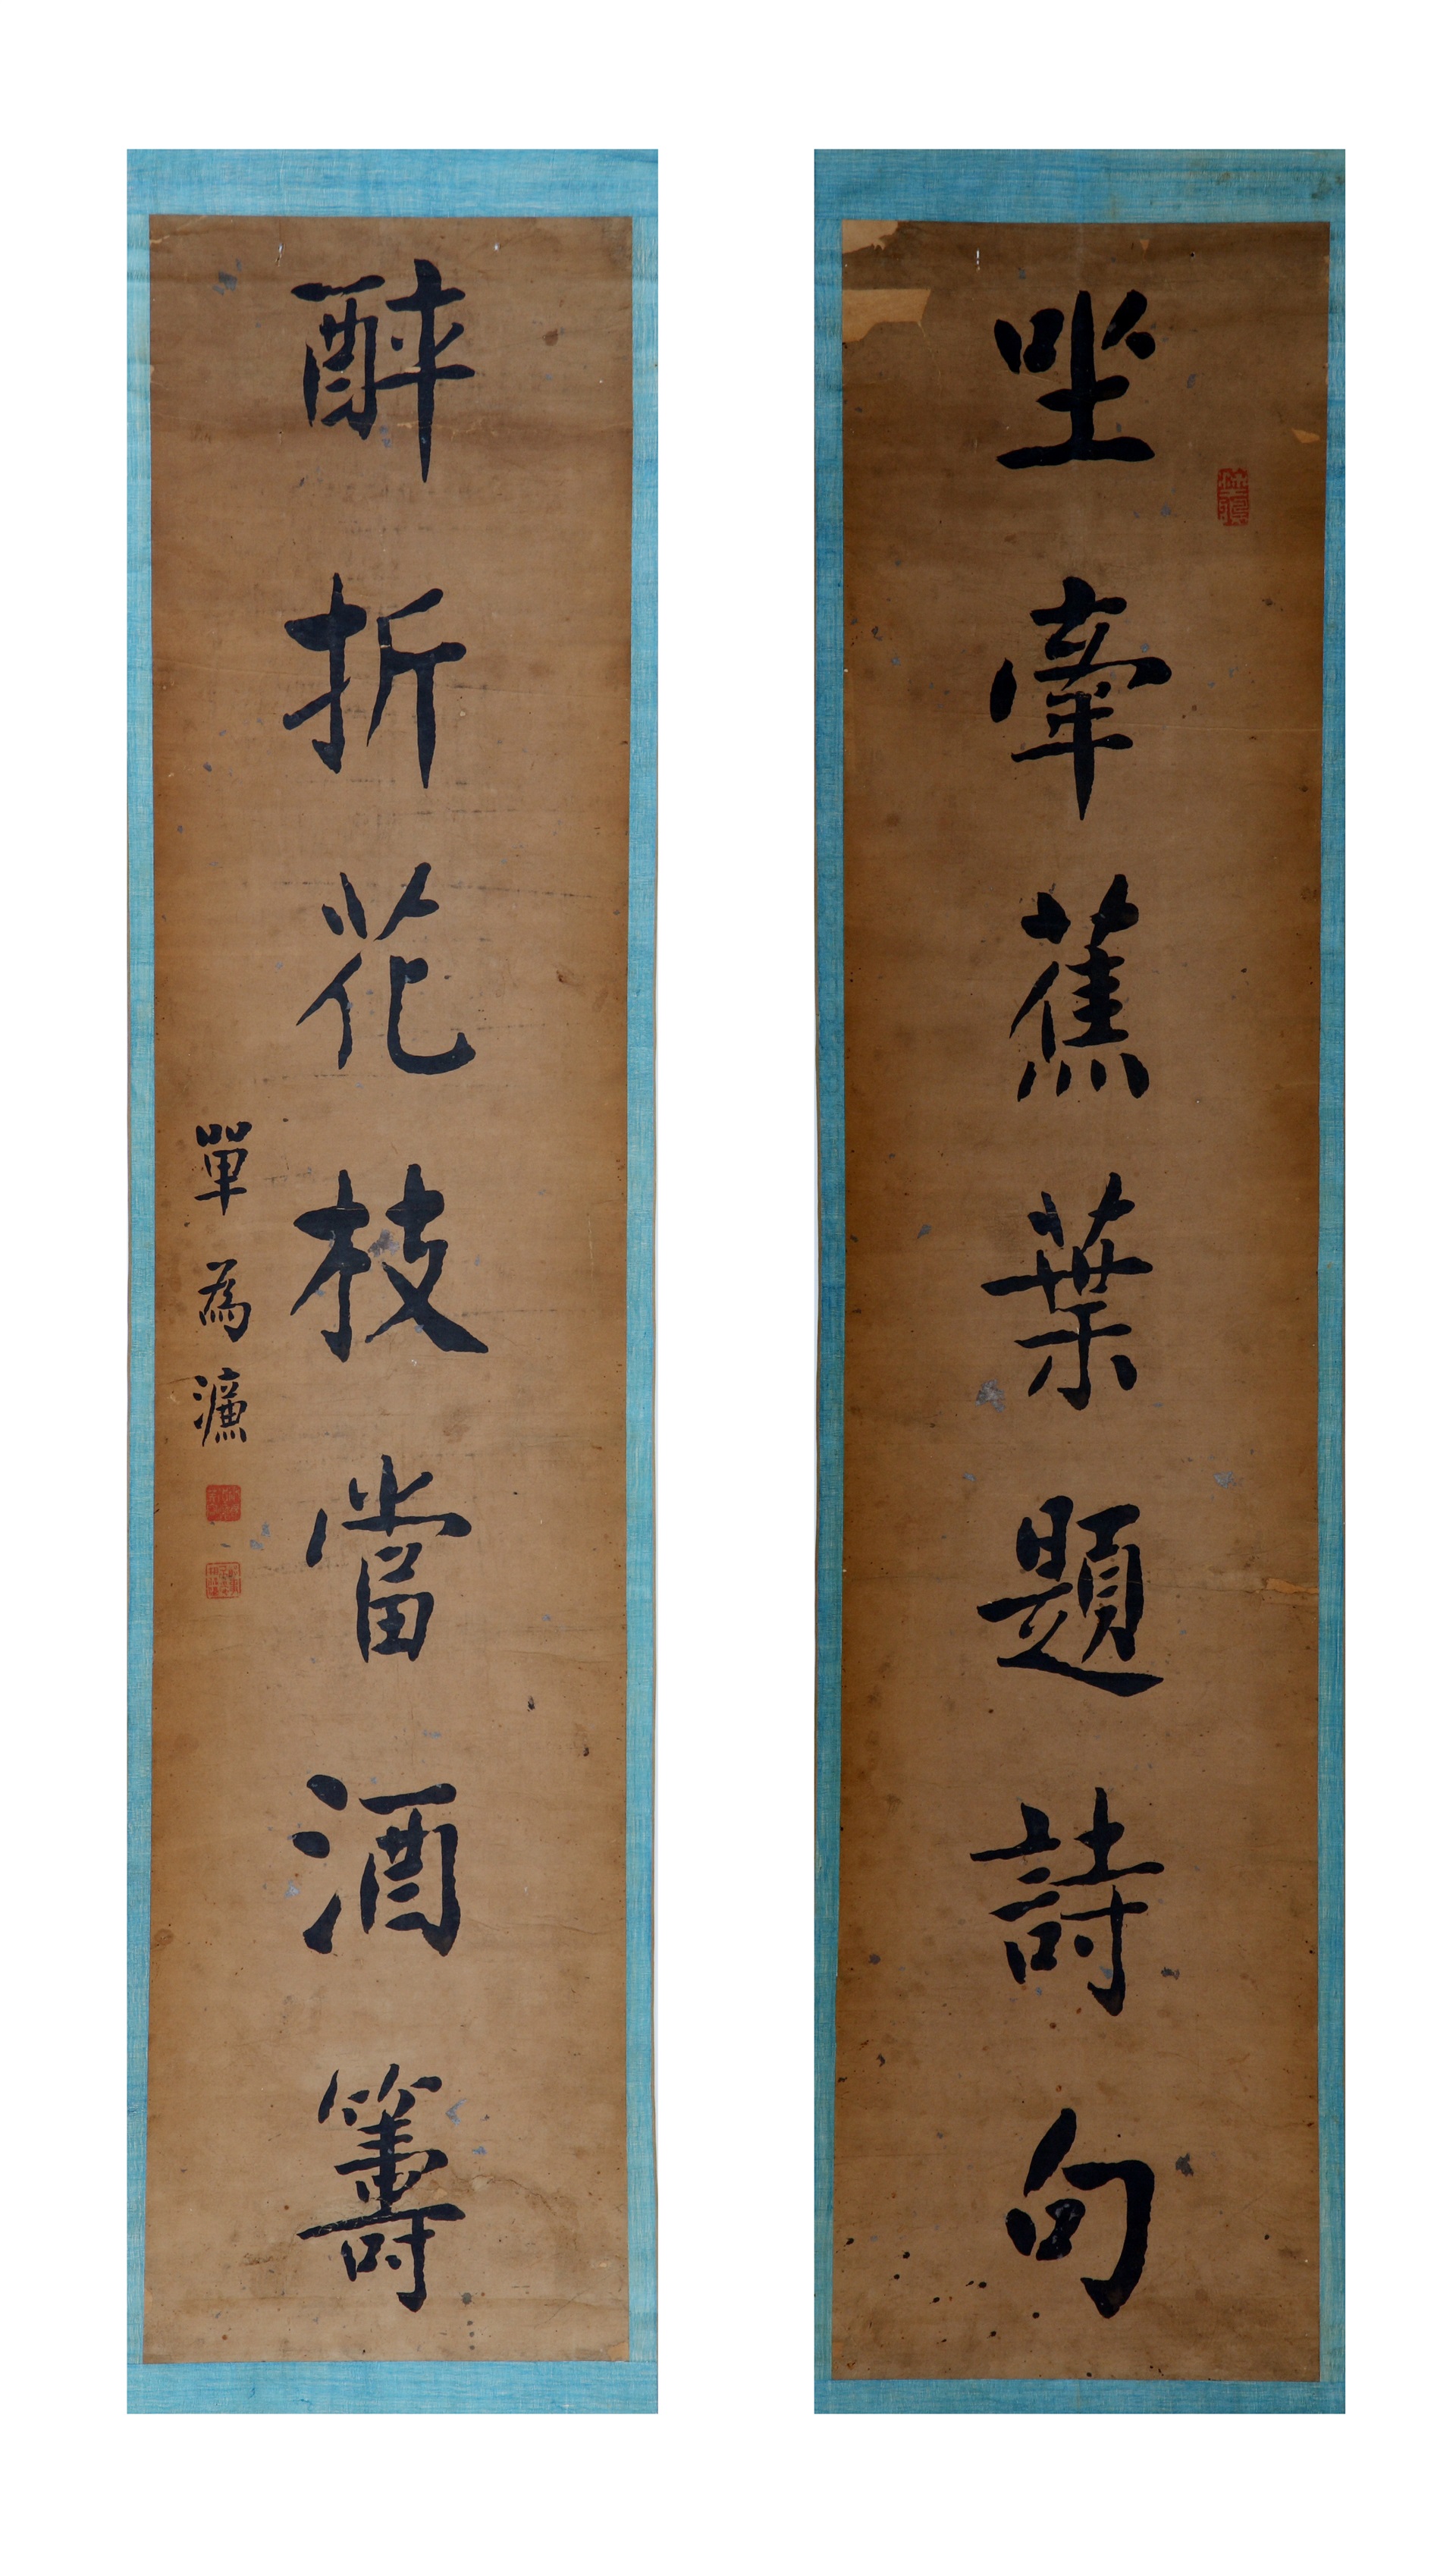 坐牽蕉葉題詩句
醉折花枝當酒籌
單為濂